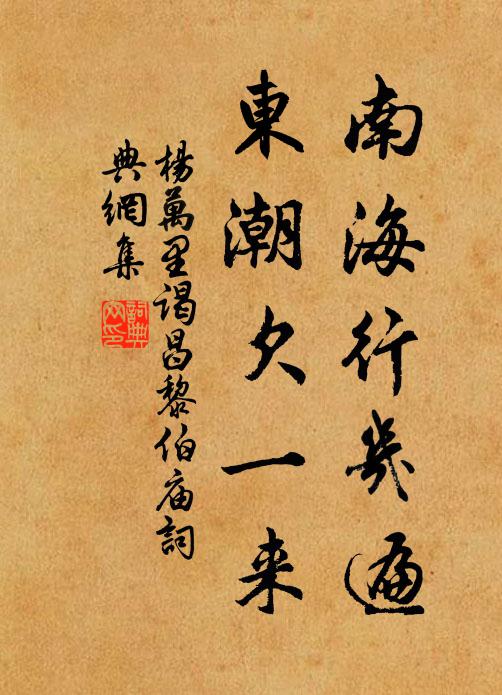 南海行幾遍
東潮欠一来
楊萬里謁昌黎伯庙詞
典網集
詞典
网印